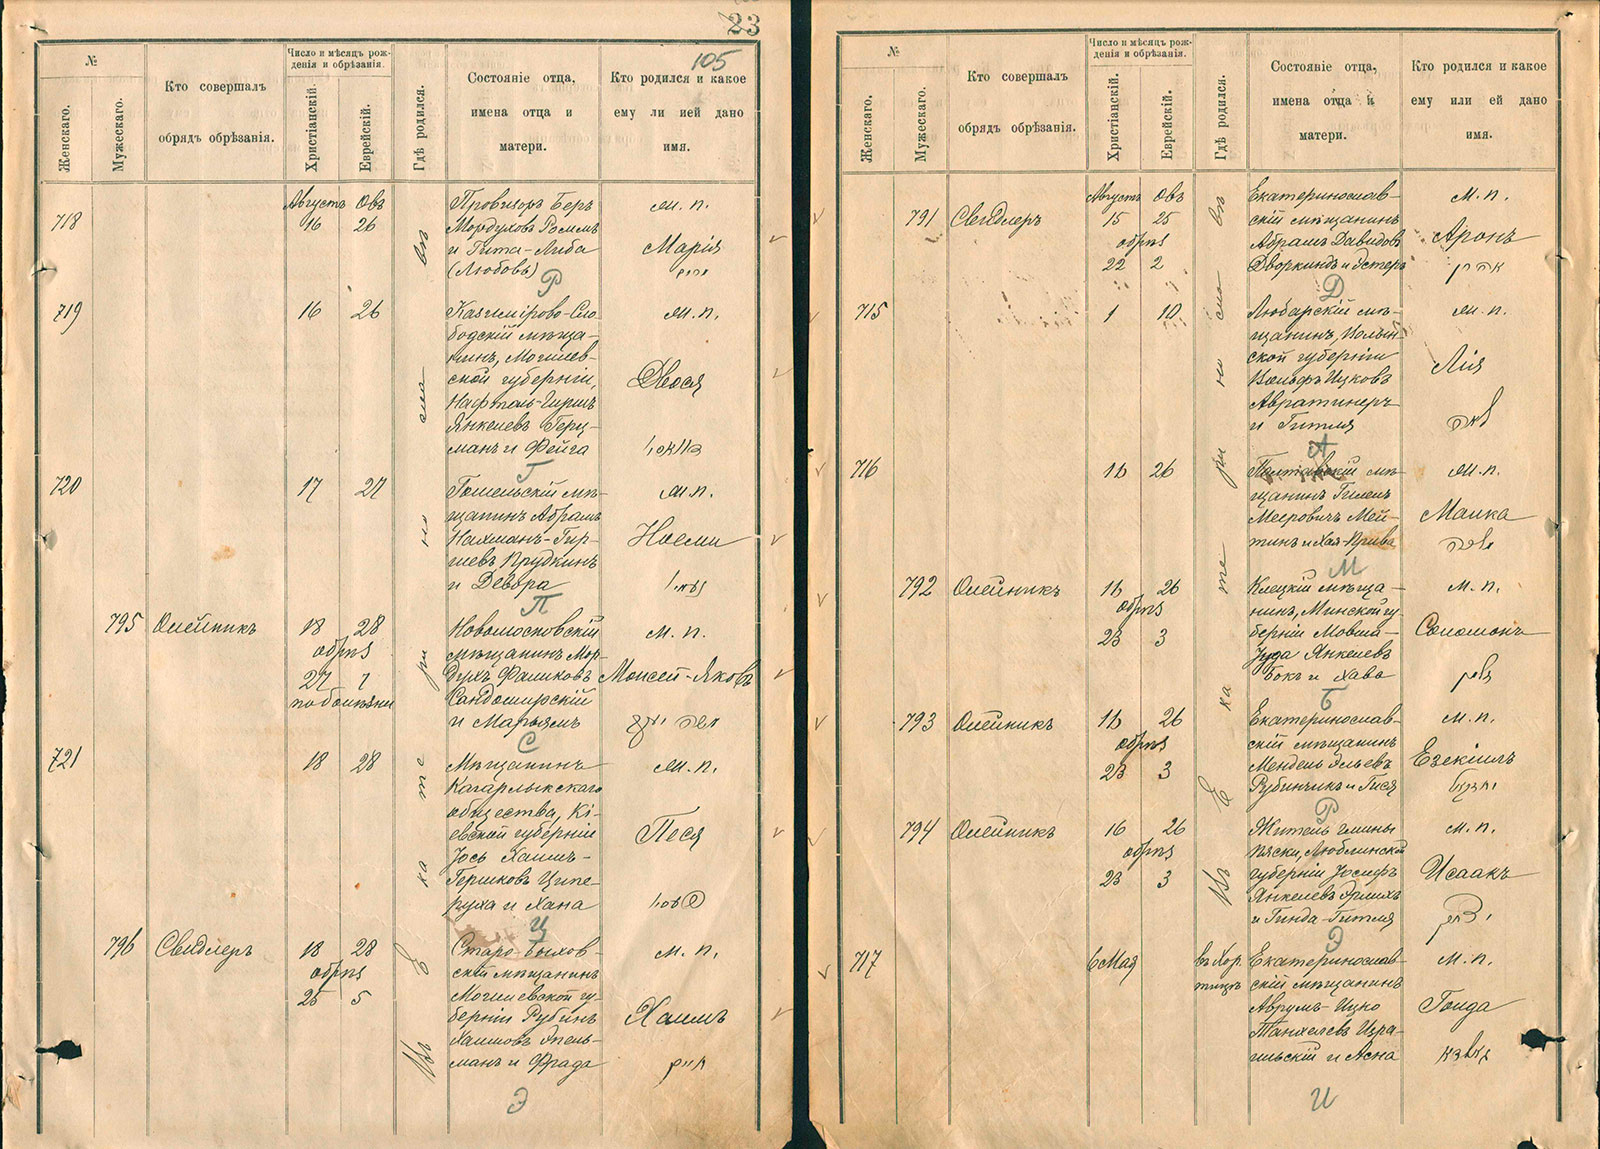 23
105
№
Женскаго.
Мужескаго.
Кто совершалъ
обрядъ обрѣзанія.
Число и мѣсяцъ рож-
денія и обрѣзанія.
Христіанскій.
Еврейскій.
Гдѣ родился.
Состояніе отца,
имена отца и
матери.
Кто родился и какое
ему ли ией дано
имя.
Въ Екатеринославѣ
718
Августъ Овъ
16 26
Провизоръ Беръ
Мордуховъ Роммъ
и Гита-Либа
(Любовь)
Р
м. п.
Марія
719
16 26
Казимірово-Сло-
бодскій мѣща-
нинъ, Могилев-
ской губерніи,
Нафтоль-Гиршъ
Янкелевъ Герц-
манъ и Фейга
Г
м. п.
Двося
720
17 27
Гомельскій мѣ-
щанинъ Абрамъ
Нахманъ-Гир-
шевъ Прудкинъ
и Девора
П
м. п.
Ноеми
נעמי
795
Олейникъ
18 28
обрѣз
27 7
по болѣзни
Новомосковскій
мѣщанинъ Мор-
духъ Фаликовъ
Сандомирскій
и Марьямъ
С
м. п.
Моисей-Яковъ
משה יעקב
721
18 28
Мѣщанинъ
Кагарлыкскаго
общества, Кі-
евской губерніи
Іось Хаимъ-
Гершковъ Ципе-
руха и Хана
Ц
м. п.
Песя
796
Свидлеръ
18 28
обрѣз
25 5
Старо-Быхов-
скій мѣщанинъ
Могилевской гу-
берніи Рубинъ
Хаимовъ Эпель-
манъ и Фрада
Э
м. п.
Хаимъ
חיים
№
Женскаго.
Мужескаго.
Кто совершалъ
обрядъ обрѣзанія.
Число и мѣсяцъ рож-
денія и обрѣзанія.
Христіанскій.
Еврейскій.
Гдѣ родился.
Состояніе отца,
имена отца и
матери.
Кто родился и какое
ему или ей дано
имя.
Въ Екатеринославѣ
791
Свидлеръ
Августъ Овъ
15 25
обрѣз
22 2
Екатеринослав-
скій мѣщанинъ
Абрамъ Давидовъ
Дворкинъ и Эстеръ
Д
м. п.
Аронъ
אהרן
715
1 10
Любарскій мѣ-
щанинъ, Волын-
ской губерніи
Вольфъ Ицковъ
Авратинеръ
и Гитля
А
м. п.
Лія
לאה
716
16 26
Полтавскій мѣ-
щанинъ Гилель
Мееровичъ Мей-
тинъ и Хая-Крива
М
м. п.
Малка
מלכה
792
Олейникъ
16 26
обрѣз
23 3
Клецкій мѣща-
нинъ, Минской гу-
берніи Мовша-
Іуда Янкелевъ
Бокъ и Хава
Б
м. п.
Соломонъ
793
Олейникъ
16 26
обрѣз
23 3
Екатеринослав-
скій мѣщанинъ
Мендель Эльевъ
Рубинчикъ и Гися
Р
м. п.
Езекіилъ
יחזקאל
794
Олейникъ
16 26
обрѣз
23 3
Житель гмины
Пяски, Люблинской
губерніи Іосифъ
Янкелевъ Эрлихъ
и Гинда-Гитля
Э
м. п.
Исаакъ
יצחק
717
6 Мая
въ Хор-
тицѣ
Екатеринослав-
скій мѣщанинъ
Аврумъ-Ицко
Танхелевъ Изра-
ильскій и Асна
И
м. п.
Голда